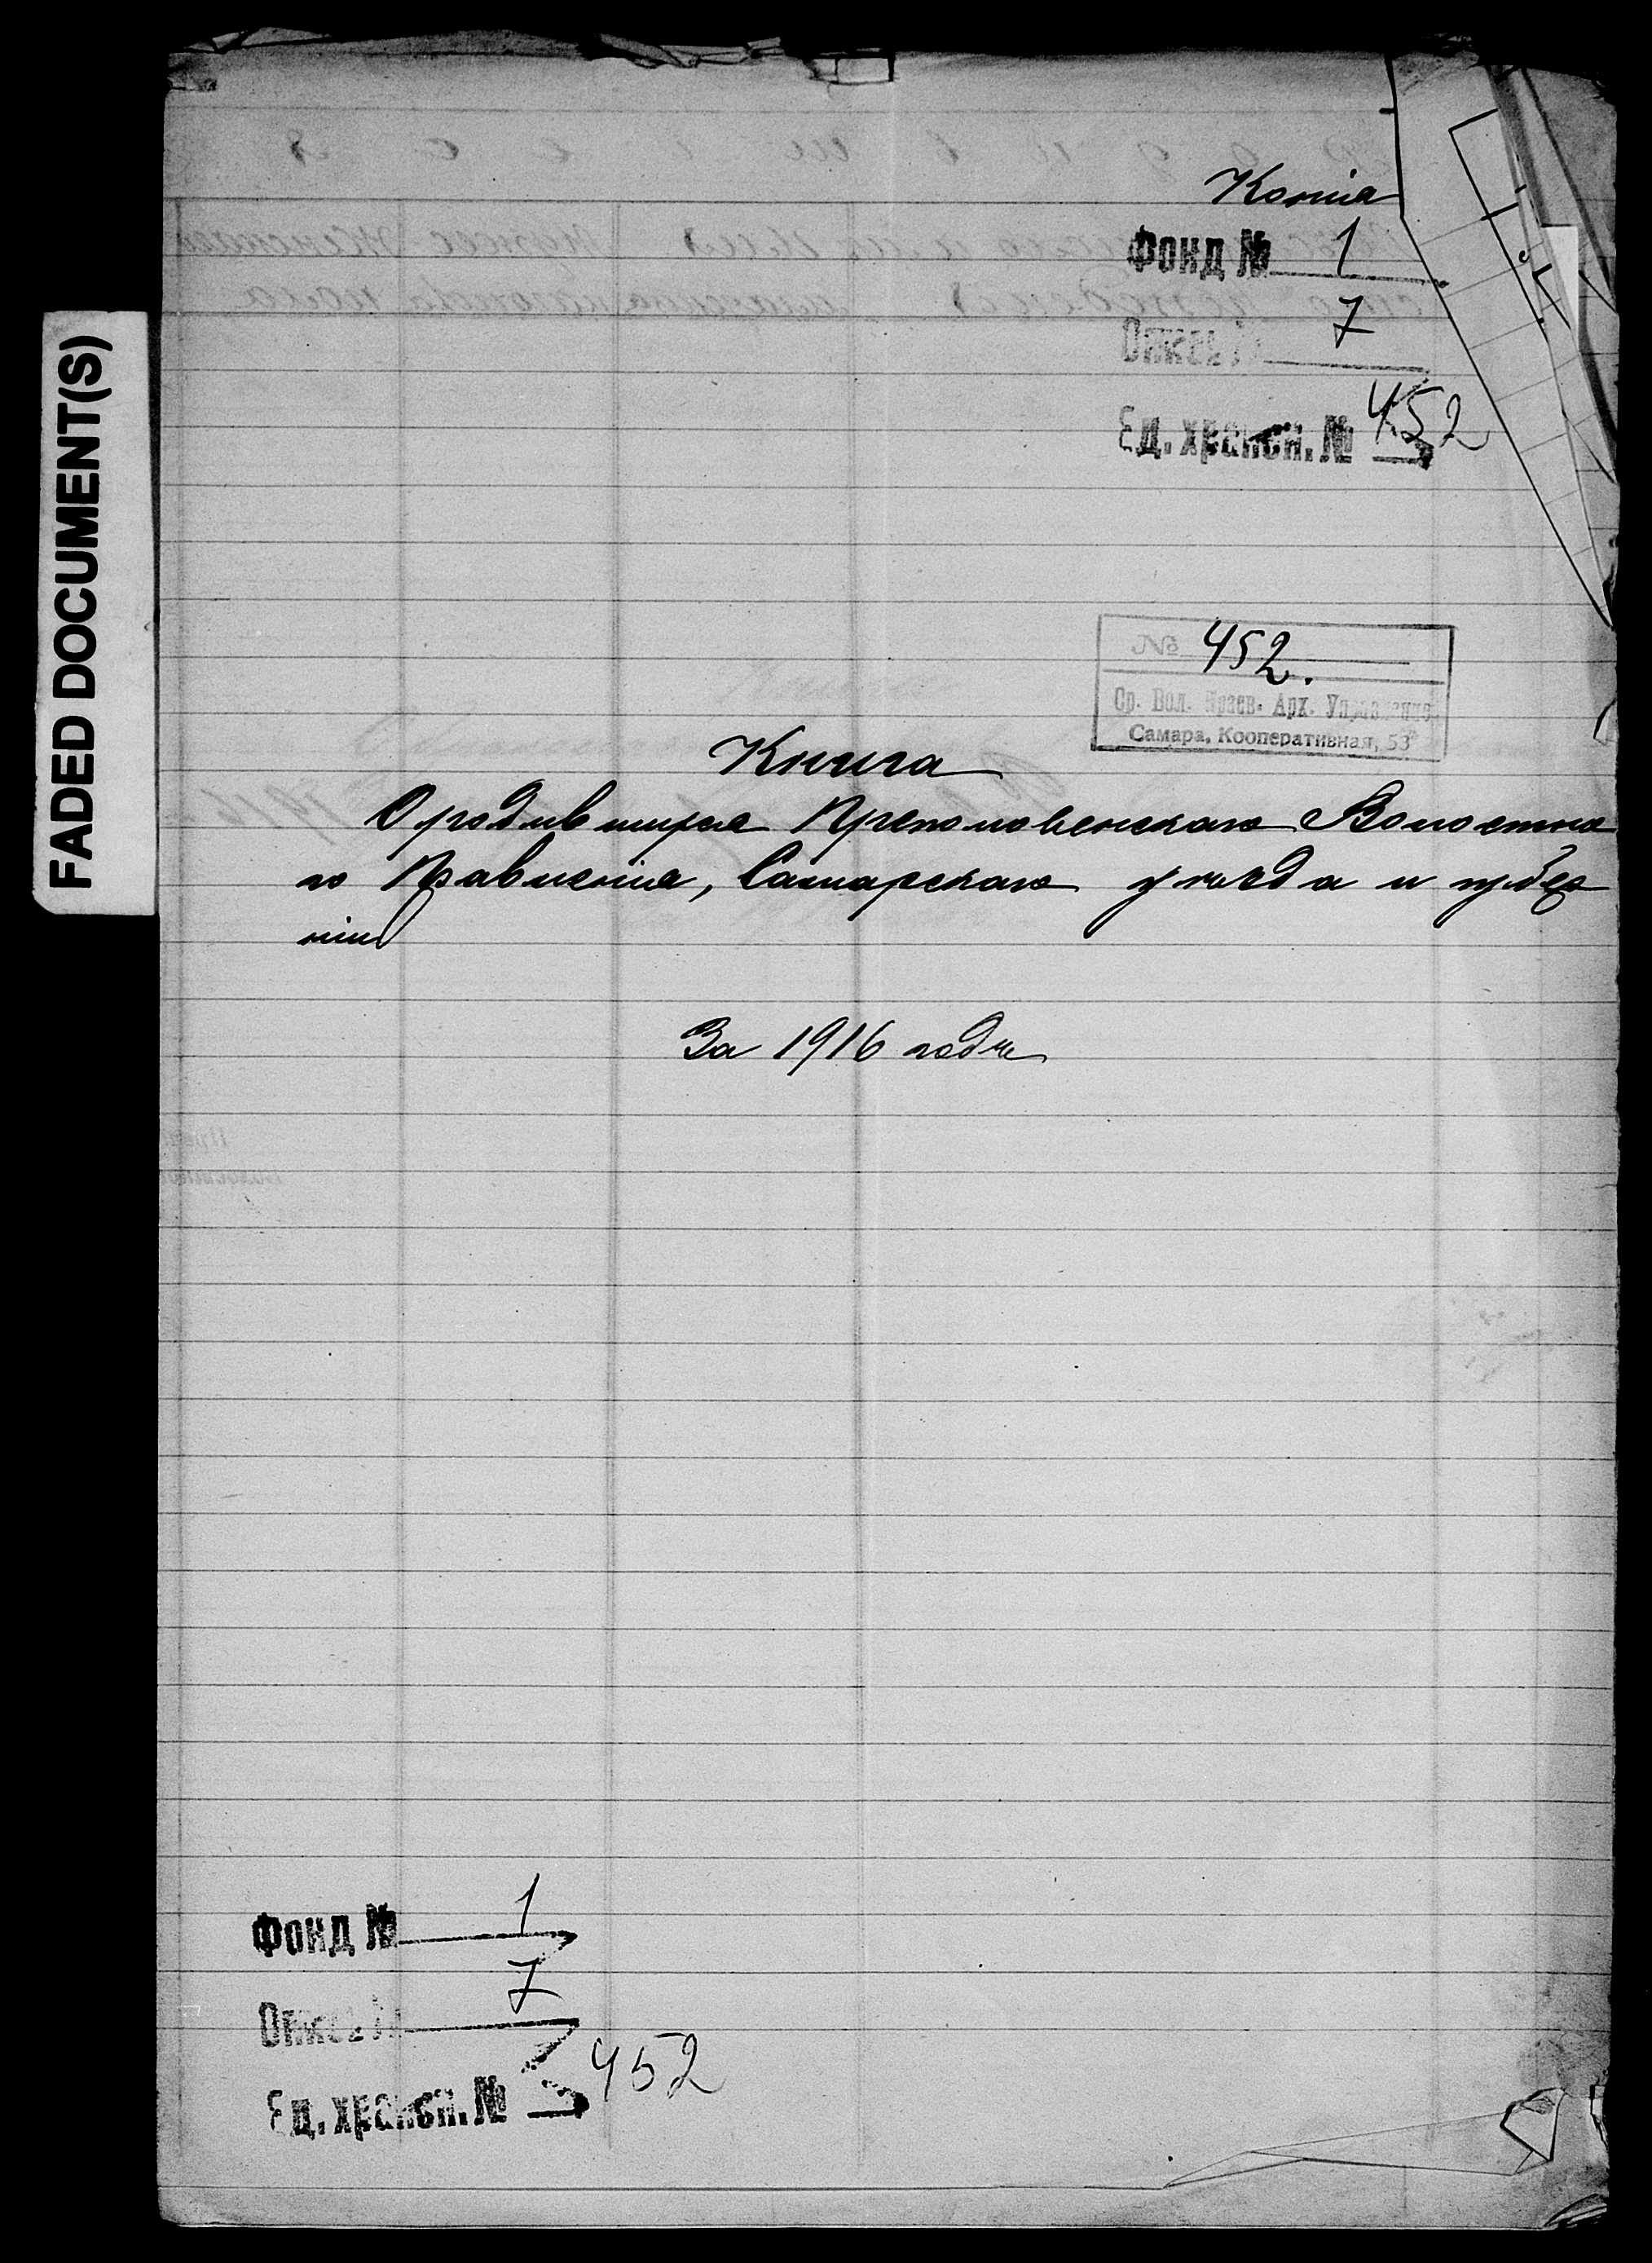 FADED DOCUMENT(S)
Копія
Фонд № 1
Опись № 7
Ед. хранен. № 452
№ 452.
Ср. Вол. Краев. Арх. Управление
Самара, Кооперативная, 53
Книга
О родившихся Преполовенскаго Волостна
го Правленія, Самарскаго уѣзда и губер
ніи
За 1916 годъ
Фонд № 1
Опись № 7
Ед. хранен. № 452